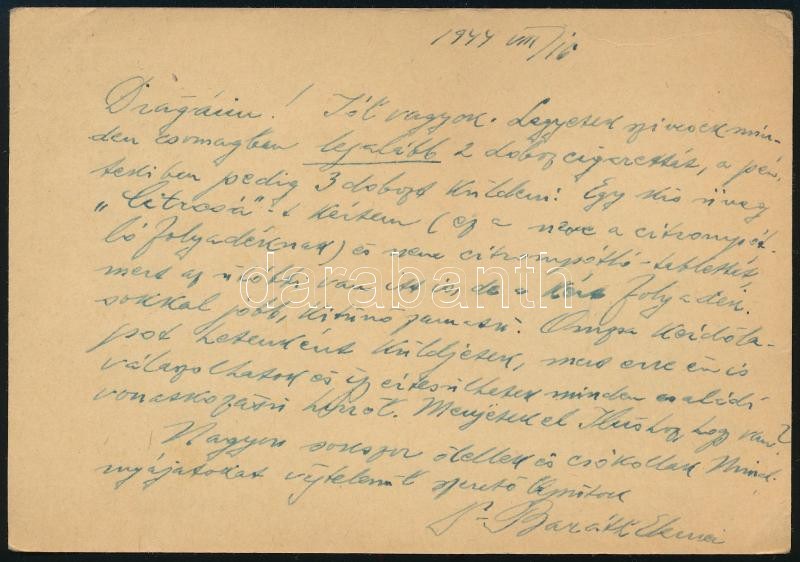 1944 VIII/16
Drágáim! Jól vagyok. Legyetek szivesek min-
den csomagban legalább 2 doboz cigarettát, a pén-
tekiben pedig 3 dobozt küldeni! Egy kis üveg
„Citrosá"-t kértem (ez a neve a citrompót-
ló folyadéknak) és nem citrompótló-tablettát,
mert az utóbbi van itt is, de a kért folyadék
sokkal jobb, kitünő zamatu! Onzsa kérdőla-
pot hetenként küldjetek, mert erre én is
válaszolhatok és így értesülhetek minden családi
vonatkozásu hírről. Menjetek el Ilushoz, hogy van?
Nagyon sokszor ölellek és csókollak Mind-
nyájatokat végtelenül szerető Apátok
Dr. Baráth
darabanth